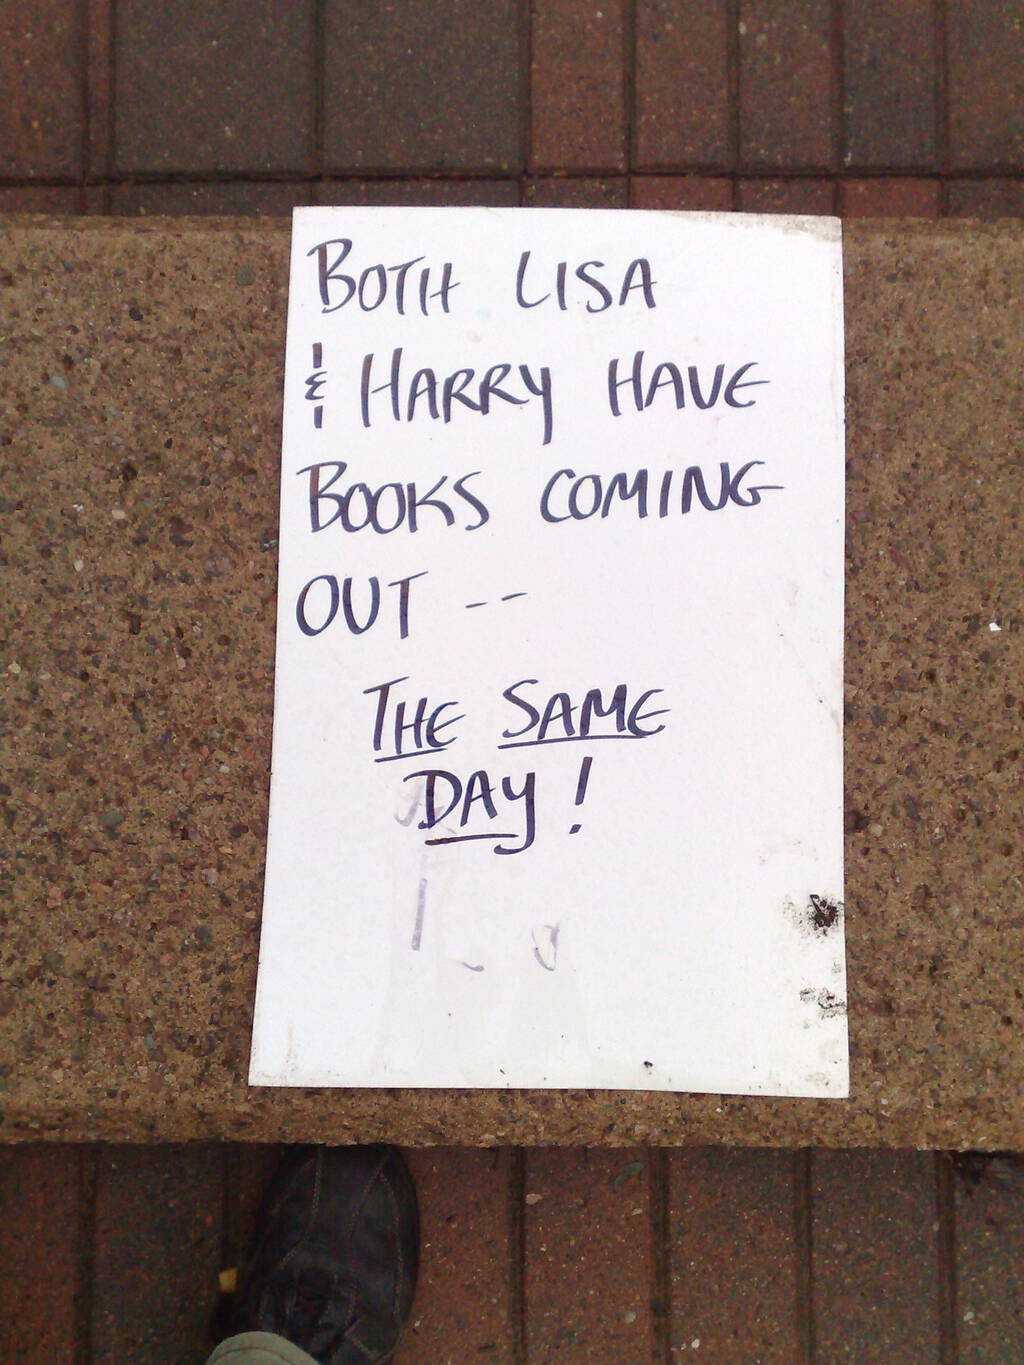 BOTH LISA
& HARRY HAVE
BOOKS COMING
OUT --
THE SAME
DAY!